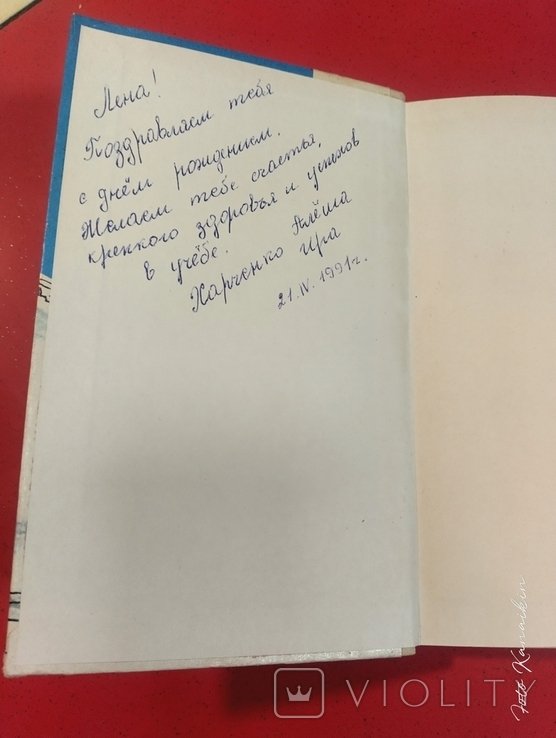 Лена!
Поздравляем тебя
с днём рождением.
Желаем тебе счастья,
крепкого здоровья и успехов
в учёбе.
Алёша
Харченко Ира
21.IV.1991г.
Foto Kanaikin
VIOLITY